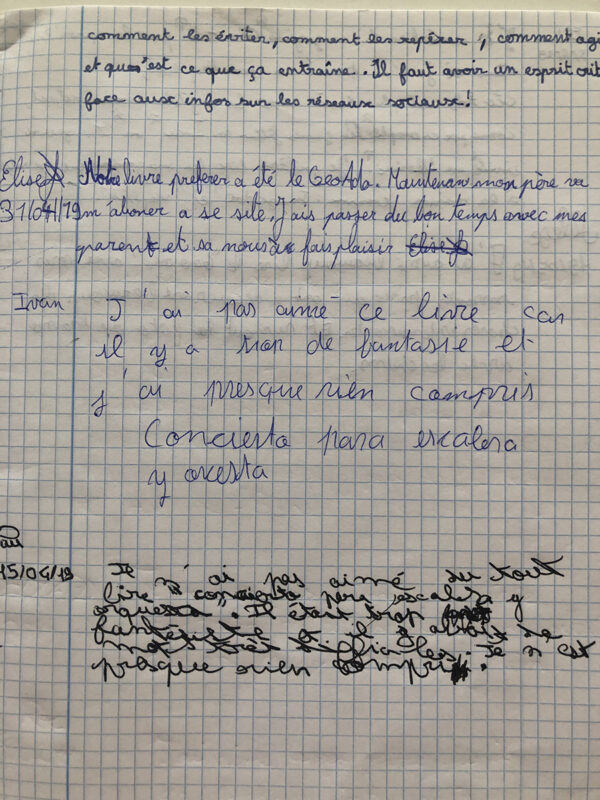 comment les éviter, comment les repérer, comment agi
et ques'est ce que ça entraîne. Il faut avoir un esprit crit
face aux infos sur les réseaux sociaux!
Elise Notre livre preferer a été le GeoAdo. Maintenan mon père va
31/04/19 m'aboner a se site. J'ais passer du bon temps avec mes
parent et sa nous a fais plaisir Elise
Ivan J'ai pas aimé ce livre car
il y a trop de fantasie et
j'ai presque rien compris
Concierto para escalera
y orcesta
15/04/19 Je n'ai pas aimé du tout
lire "concierto para escalera y
orquesta. Il était trop
et il y avait
mots très difficiles. Je n'est
presque rien compris.